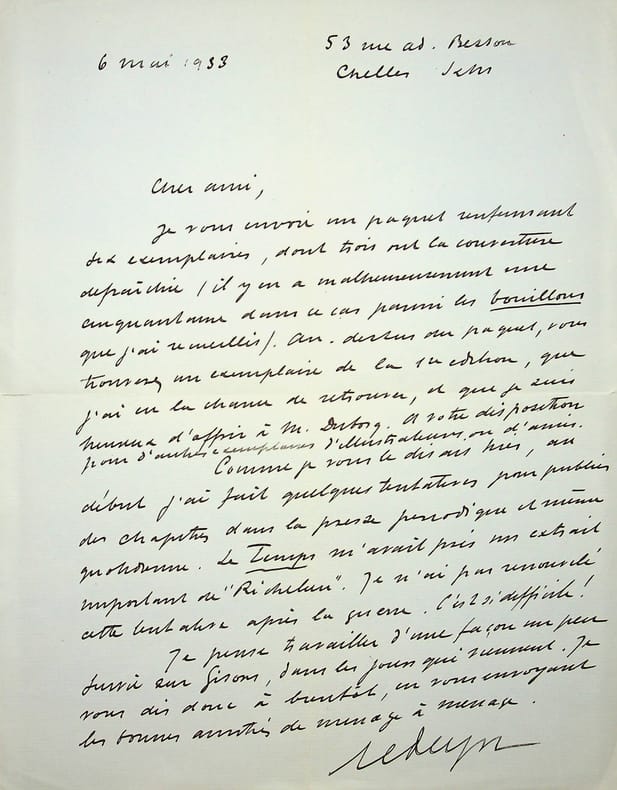 6 mai 1953
53 rue ad. Besson
Chelles
Cher ami,
Je vous envoie un paquet renfermant
six exemplaires, dont trois ont la couverture
defraîchie (il y en a malheureusement une
cinquantaine dans ce cas parmi les bouillons
que j'ai recueillis). Au-dessus du paquet, vous
trouverez un exemplaire de la 1re edition, que
j'ai eu la chance de retrouver, et que je suis
heureux d'offrir à M. Dubosq. A votre disposition
pour d'autres exemplaires d'illustrateurs ou d'amis.
Comme je vous le disais hier, au
début j'ai fait quelques tentatives pour publier
des chapitres dans la presse periodique et même
quotidienne. Le Temps m'avait pris un extrait
important de "Richelieu". Je n'ai pas renouvelé
cette tentative après la guerre. C'est si difficile!
Je pense travailler d'une façon un peu
suivie sur Gisors, dans les jours qui viennent. Je
vous dis donc à bientôt, en vous envoyant
les bonnes amitiés de menage à menage.